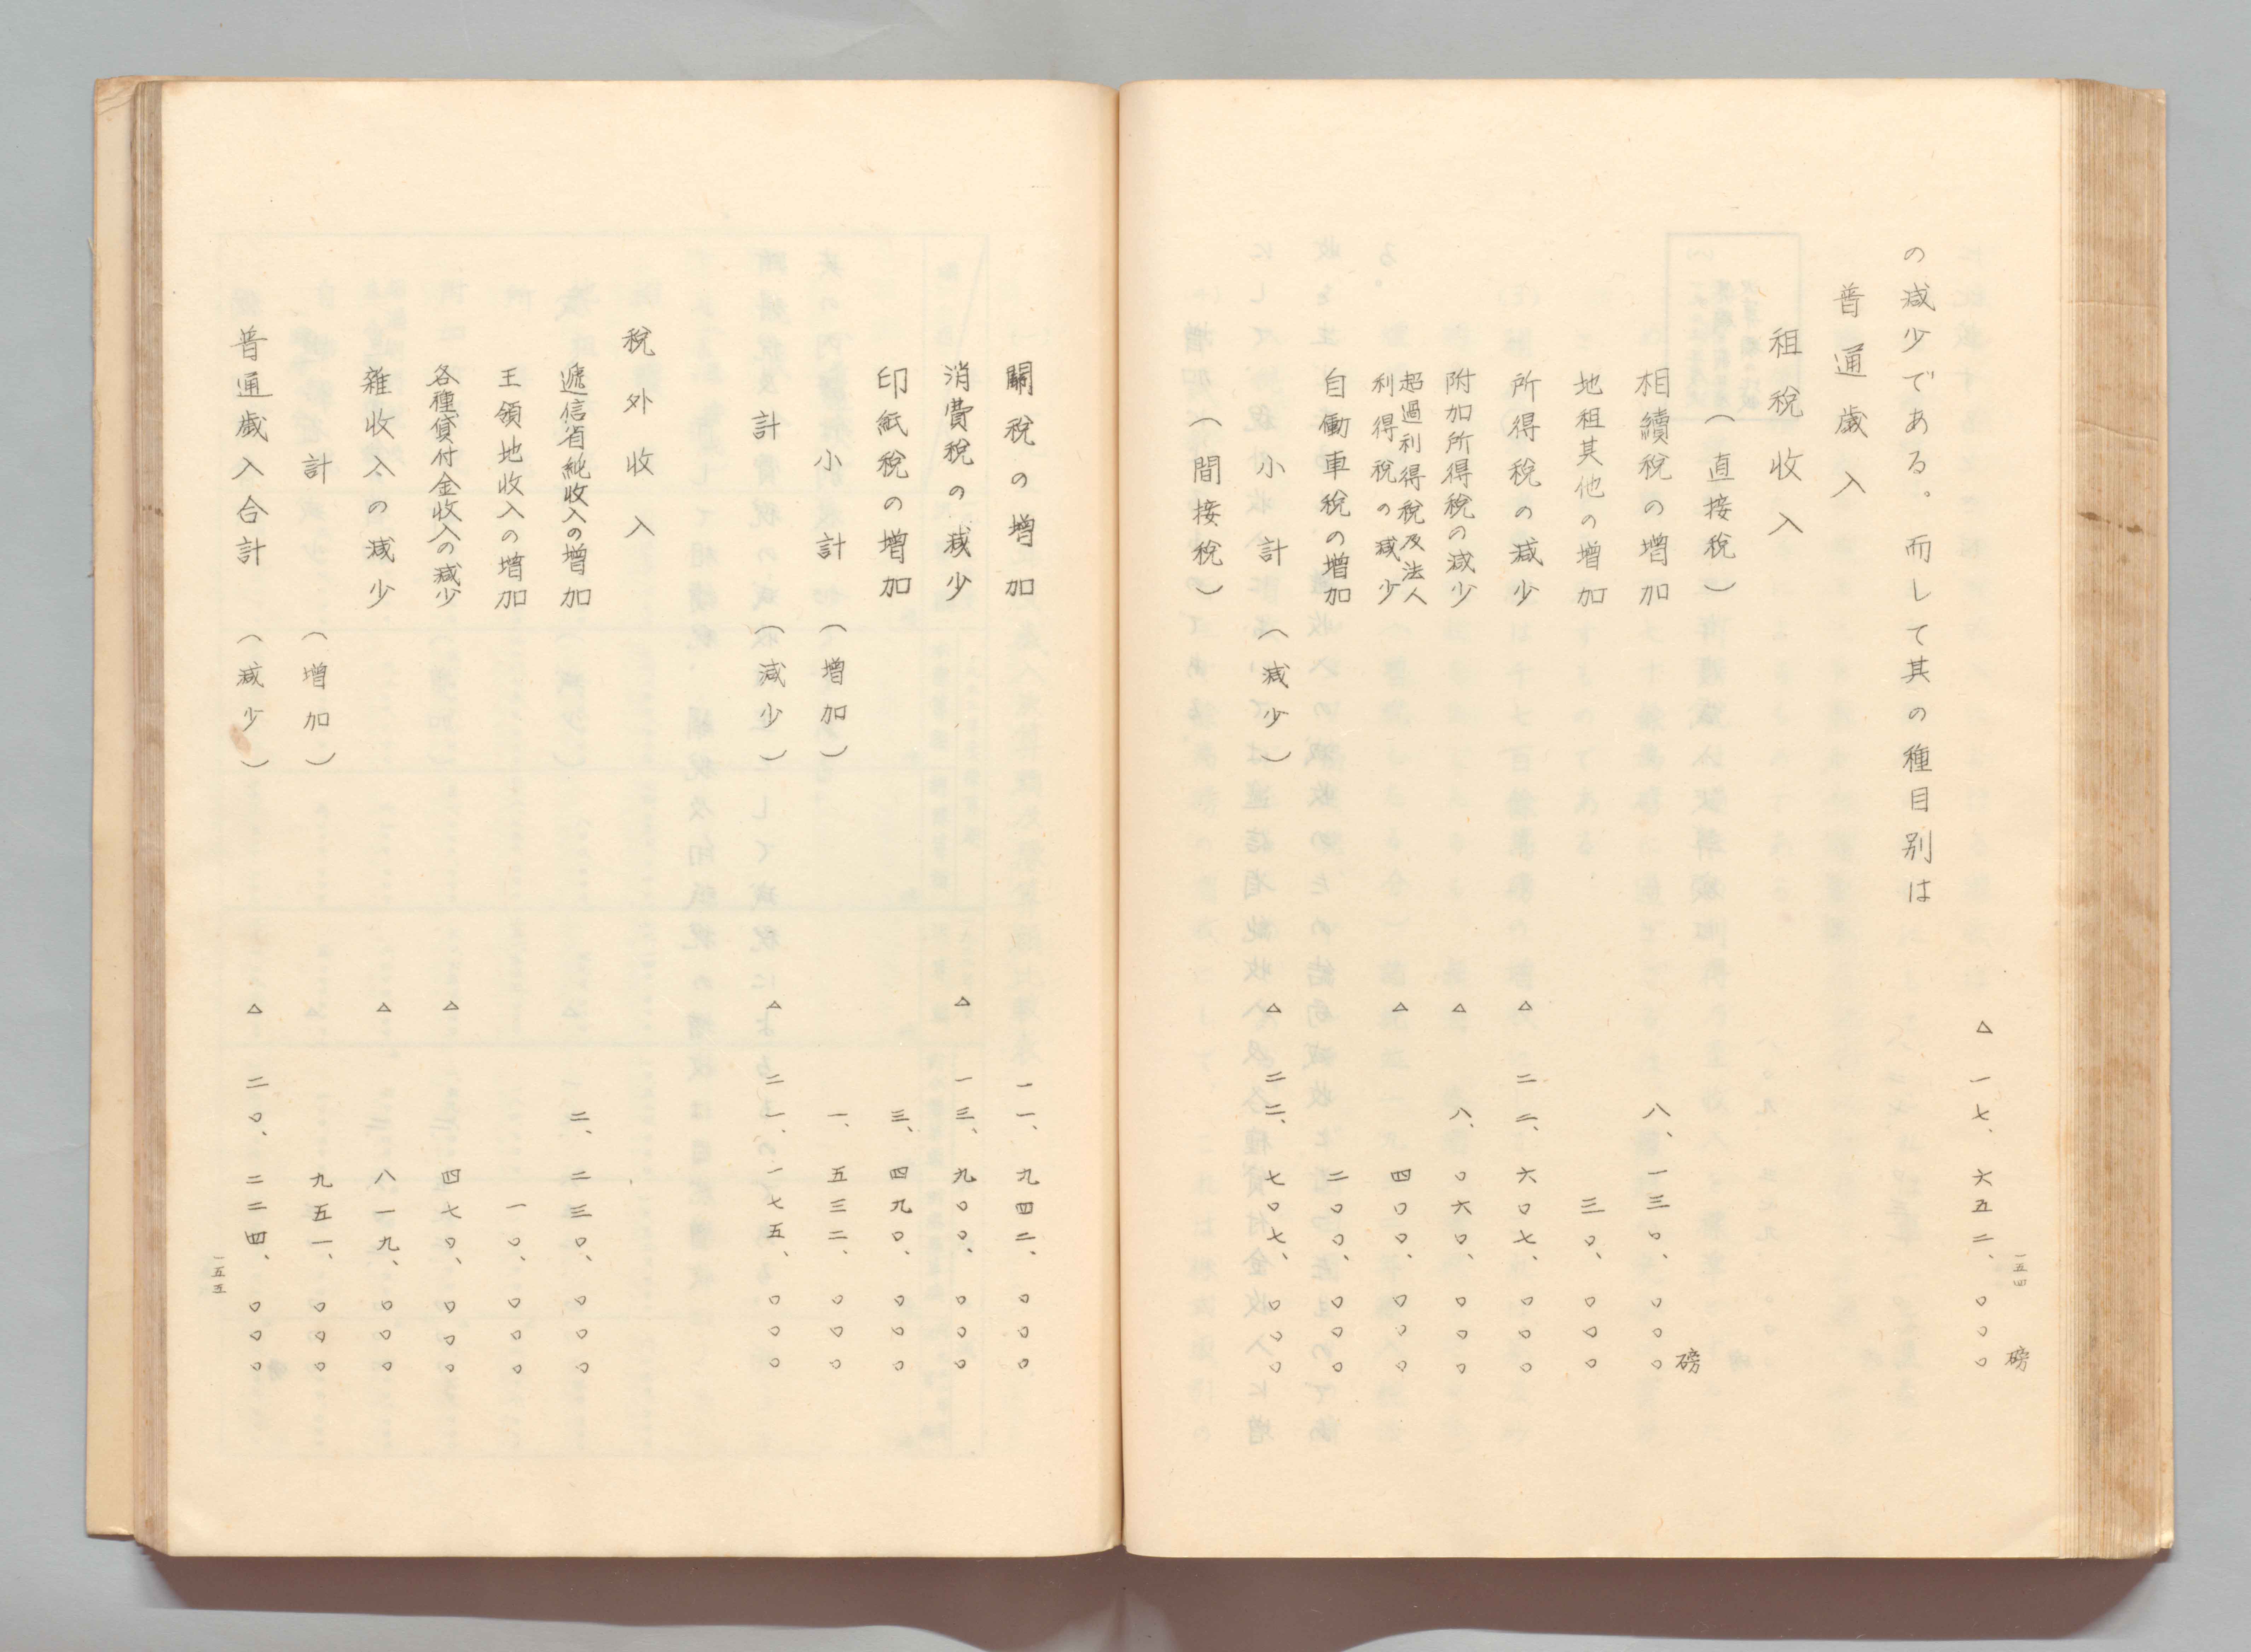 一五四
磅
△一七、六五二、〇〇〇
の減少である。而して其の種目別は
普通歳入
租税収入
(直接税)
磅
相續税の増加 八、一三〇、〇〇〇
地租其他の増加 三〇、〇〇〇
所得税の減少 △二二、六〇七、〇〇〇
附加所得税の減少 △八、〇六〇、〇〇〇
超過利得税及法人
利得税の減少 △四〇〇、〇〇〇
自働車税の増加 二〇〇、〇〇〇
小計(減少) △二二、七〇七、〇〇〇
(間接税)
關税の増加 一一、九四二、〇〇〇
消費税の減少 △一三、九〇〇、〇〇〇
印紙税の増加 三、四九〇、〇〇〇
小計(増加) 一、五三二、〇〇〇
計(減少) △二一、一七五、〇〇〇
税外收入
遞信省純收入の増加 二、二三〇、〇〇〇
王領地收入の増加 一〇、〇〇〇
各種貸付金收入の減少 △四七〇、〇〇〇
雜收入の減少 △八一九、〇〇〇
計(増加) 九五一、〇〇〇
普通歳入合計(減少) △二〇、二二四、〇〇〇
一五五